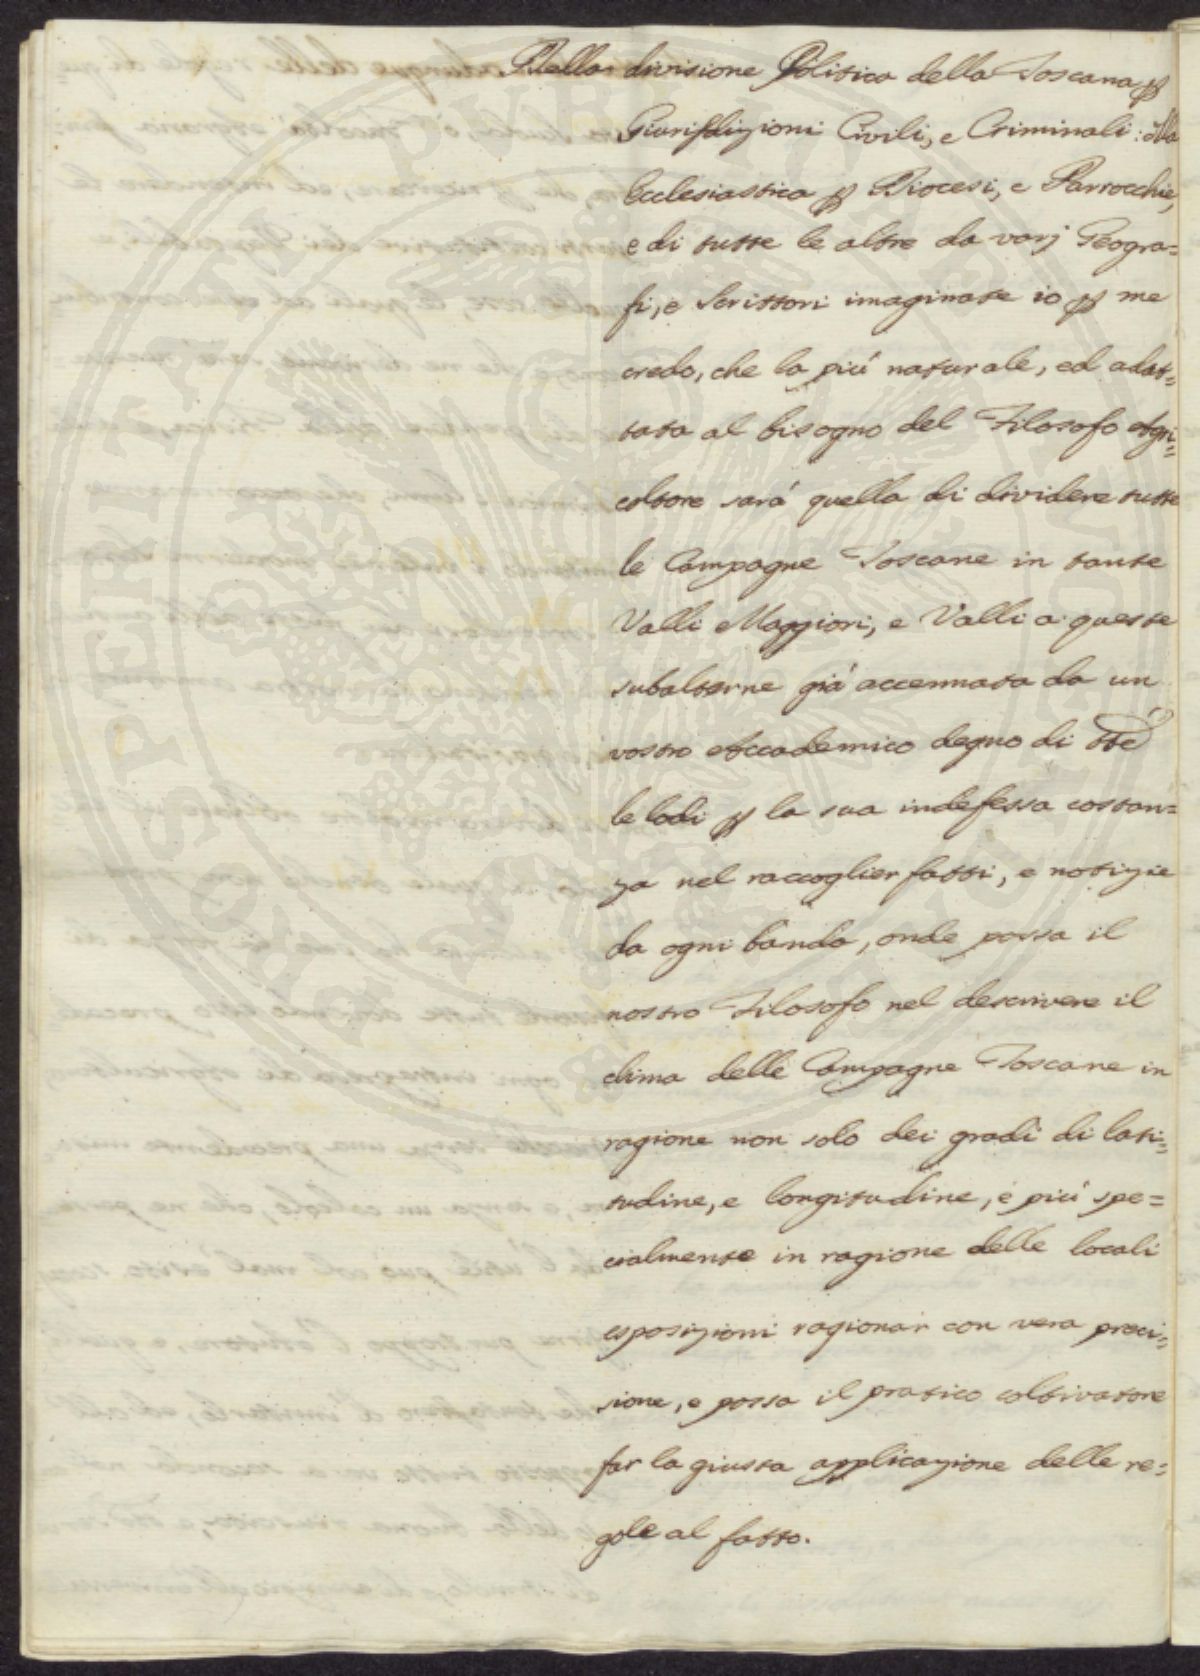 Della divisione Politica della Toscana ꝑ
Giurisdizioni Civili, e Criminali: della
Ecclesiastica ꝑ Diocesi, e Parrocchie,
e di tutte le altre da varj Geogra=
fi, e Scrittori imaginate io ꝑ me
credo, che la piú naturale, ed adat=
tata al bisogno del Filosofo Agri=
coltore sará quella di dividere tutte
le Campagne Toscane in tante
Valli Maggiori, e Valli a queste
subalterne giá accennata da un
vostro Accademico degno di
le lodi ꝑ la sua indefessa costan=
za nel raccoglier fatti, e notizie
da ogni banda, onde possa il
nostro Filosofo nel descrivere il
clima delle Campagne Toscane in
ragione non solo dei gradi di lati=
tudine, e longitudine, e piú spe=
cialmente in ragione delle locali
esposizioni ragionar con vera preci=
sione, e possa il pratico coltivatore
far la giusta applicazione delle re=
gole al fatto.
PROSPERITATI PUBLICAE AUGENDAE